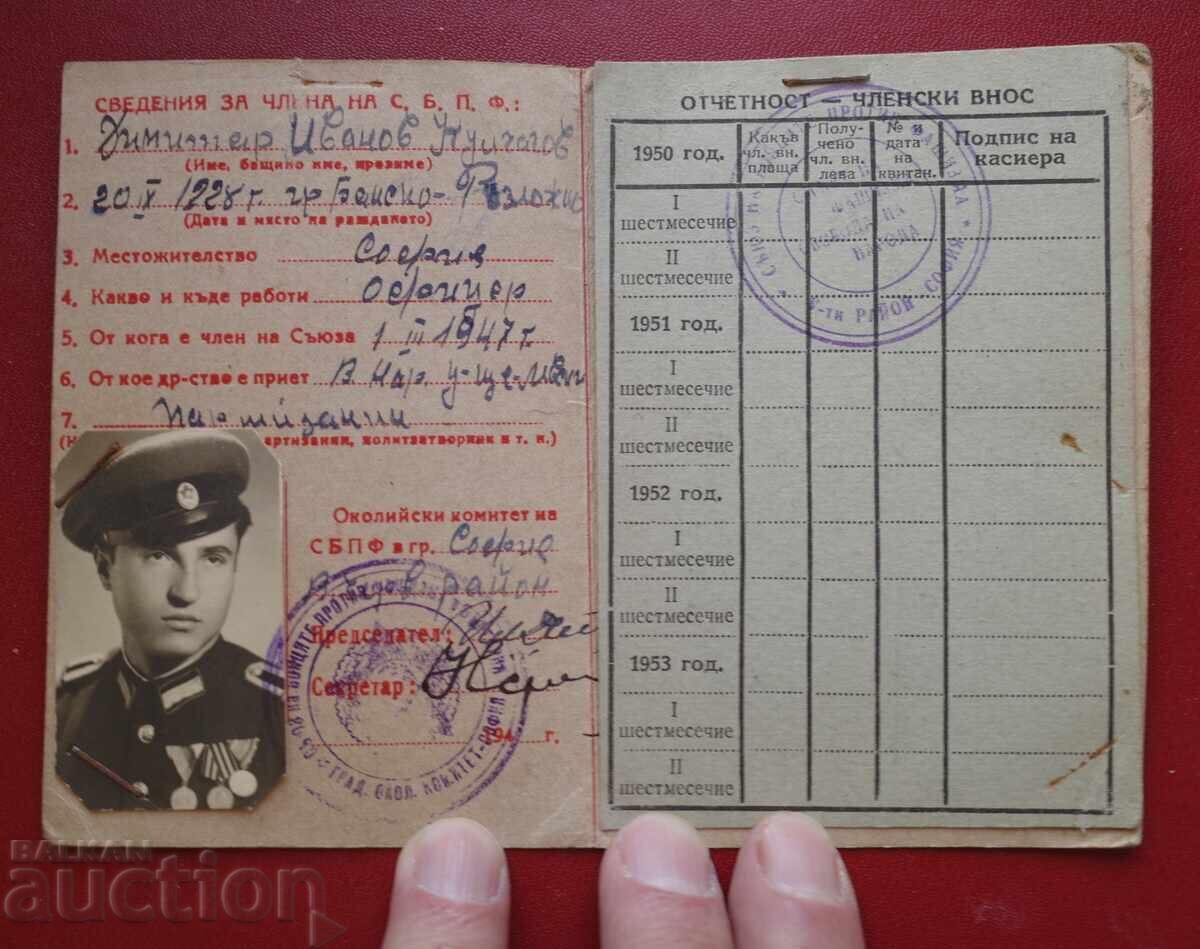 СВЕДЕНИЯ ЗА ЧЛЕНА НА С. Б. П. Ф.:
1. Димитър Иванов
(Име, бащино име, презиме)
2. 20 1228 г. гр Банско - Разложко
(Дата и място на раждането)
3. Местожителство София
4. Какво и къде работи Офицер
5. От кога е член на Съюза 1 III 1947 г.
6. От кое др-ство е приет В Нар. у-ще
7. партизанин
ятник и т. н.)
Околийски комитет на
СБПФ в гр. София
район
Председател:
Секретар:
194 г.
ГРАД. ОКОЛ. КОМИТЕТ-СОФИЯ
ОТЧЕТНОСТ — ЧЛЕНСКИ ВНОС
1950 год. Какъв чл. вн. плаща Полу- чено чл. вн. лева № и дата на квитан. Подпис на касиера
I шестмесечие
II шестмесечие
1951 год.
I шестмесечие
II шестмесечие
1952 год.
I шестмесечие
II шестмесечие
1953 год.
I шестмесечие
II шестмесечие
РАЙОН - СОФИЯ
BALKAN
auction